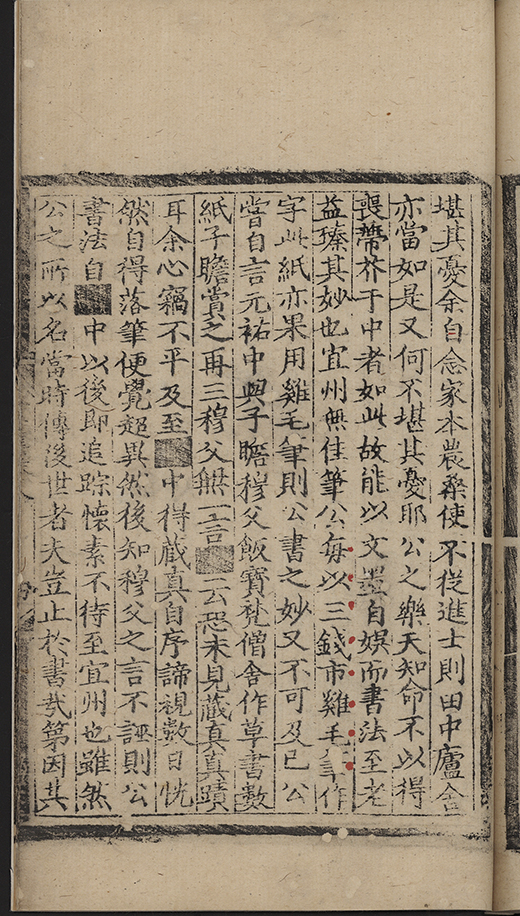 堪其憂余自念家本農桑使不從進士則田中廬舍
亦當如是又何不堪其憂耶公之樂天知命不以得
喪蔕芥于中者如此故能以文墨自娛而書法至老
益臻其妙也宜州無佳筆公每以三錢市雞毛筆作
字此紙亦果用雞毛筆則公書之妙又不可及已公
嘗自言元祐中與子瞻穆父飯寶梵僧舍作草書數
紙子瞻賞之再三穆父無一言云恐未見藏真真蹟
耳余心竊不平及至中得藏真自序諦視數日恍
然自得落筆便覺超異然後知穆父之言不誣則公
書法自中以後即追踪懷素不待至宜州也雖然
公之所以名當時傳後世者夫豈止於書哉第因其